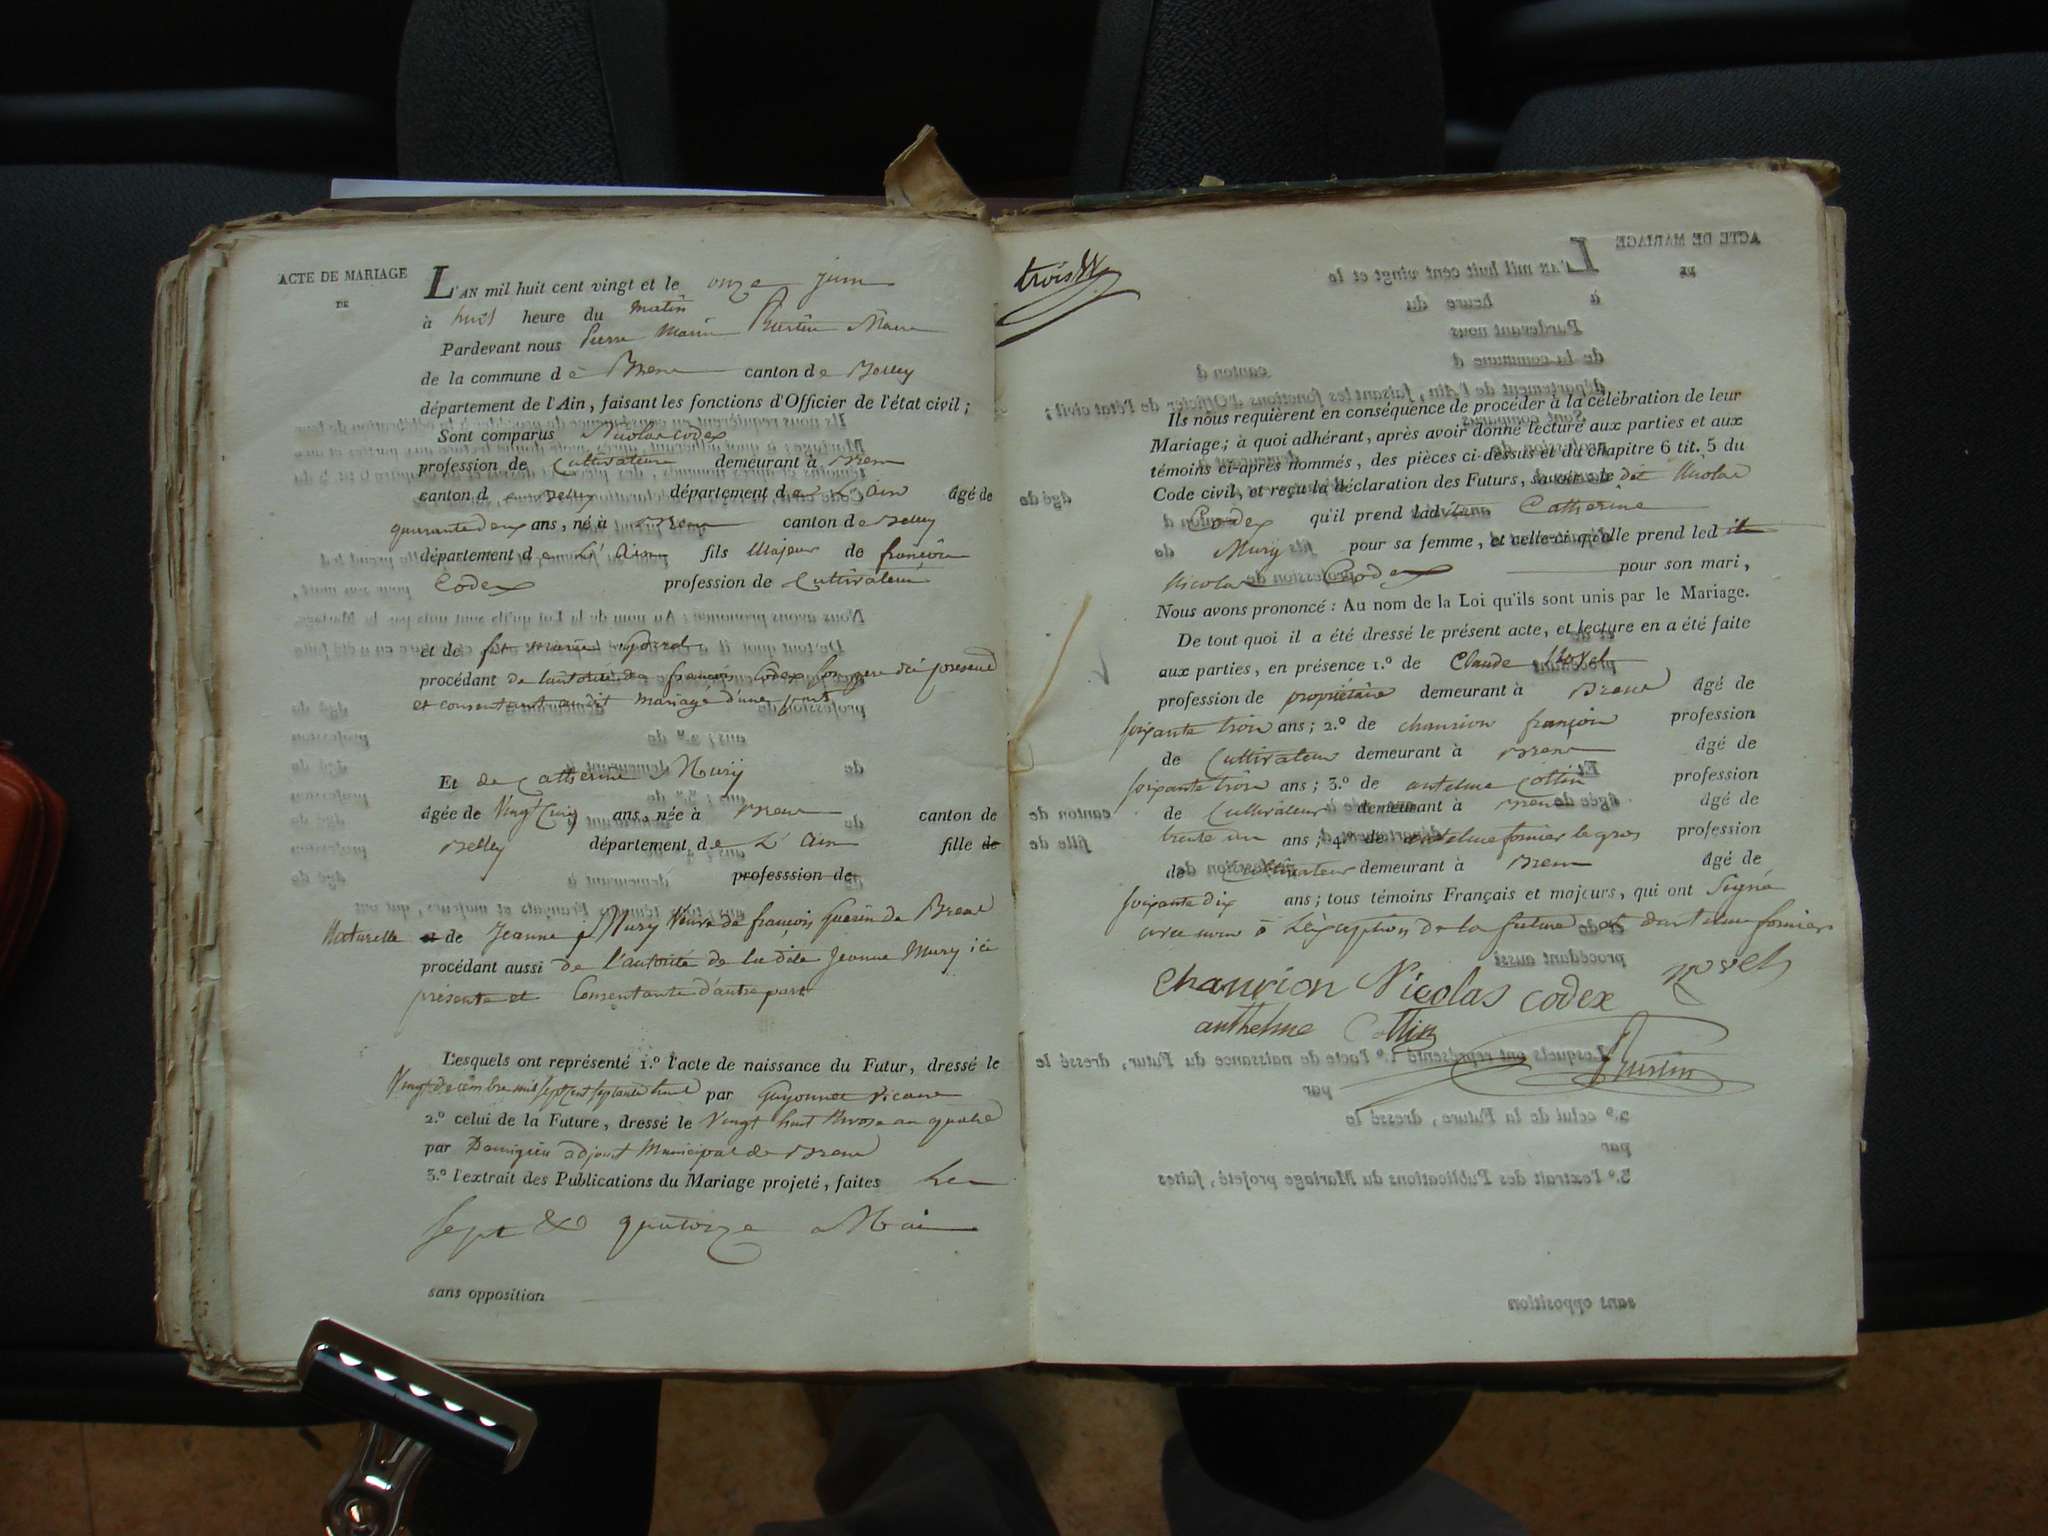 ACTE DE MARIAGE
DE
L'AN mil huit cent vingt et le onze juin
à huit heure du matin
Pardevant nous Pierre Marin Maire
de la commune de Brens canton de Belley
département de l'Ain, faisant les fonctions d'Officier de l'état civil ;
Sont comparus Nicolas Codex
profession de Cultivateur demeurant à Brens
canton de Belley département de L'Ain âgé de
quarante deux ans, né à Brens canton de Belley
département de L'Ain fils Majeur de françois
Codex profession de Cultivateur
et de marie
procédant de l'autorité de françois Codex son pere ici présent
et consentant audit mariage d'une part
Et de Catherine Mury
âgée de Vingt cinq ans, née à Brens canton de
Belley département de L'Ain fille de
professsion de
Naturelle et de Jeanne Mury Veuve de francois Guerin de Brens
procédant aussi de l'autorité de la dite Jeanne Mury ici
présente et Consentante d'autre part
Lesquels ont représenté 1.º l'acte de naissance du Futur, dressé le
Vingt decembre mil sept cent septante par Guyonnet Vicaire
2.º celui de la Future, dressé le Vingt huit an quatre
par adjoint Municipal de Brens
3.º l'extrait des Publications du Mariage projeté, faites Les
sept & quatorze Mai
sans opposition
trois
Ils nous requièrent en conséquence de procéder à la célébration de leur
Mariage ; à quoi adhérant, après avoir donné lecture aux parties et aux
témoins ci-après nommés, des pièces ci-dessus et du chapitre 6 tit. 5 du
Code civil, et reçu la déclaration des Futurs, savoir : le dit Nicolas
Codex qu'il prend ladite Catherine
Mury pour sa femme, et celle-ci qu'elle prend led it
Nicolas Codex pour son mari,
Nous avons prononcé : Au nom de la Loi qu'ils sont unis par le Mariage.
De tout quoi il a été dressé le présent acte, et lecture en a été faite
aux parties, en présence 1.º de Claude Novel
profession de propriétaire demeurant à Brens âgé de
soixante trois ans ; 2.º de chaurion françois profession
de Cultivateur demeurant à Brens âgé de
soixante trois ans ; 3.º de antelme Collin profession
de Cultivateur demeurant à Brens âgé de
trente un ans ; 4.º de antelme fornier le gros profession
de Cultivateur demeurant à Brens âgé de
soixante dix ans ; tous témoins Français et majeurs, qui ont Signé
avec nous à L'exception de la future et d'antelme fornier
Chaurion Nicolas codex novel
anthelme Collin